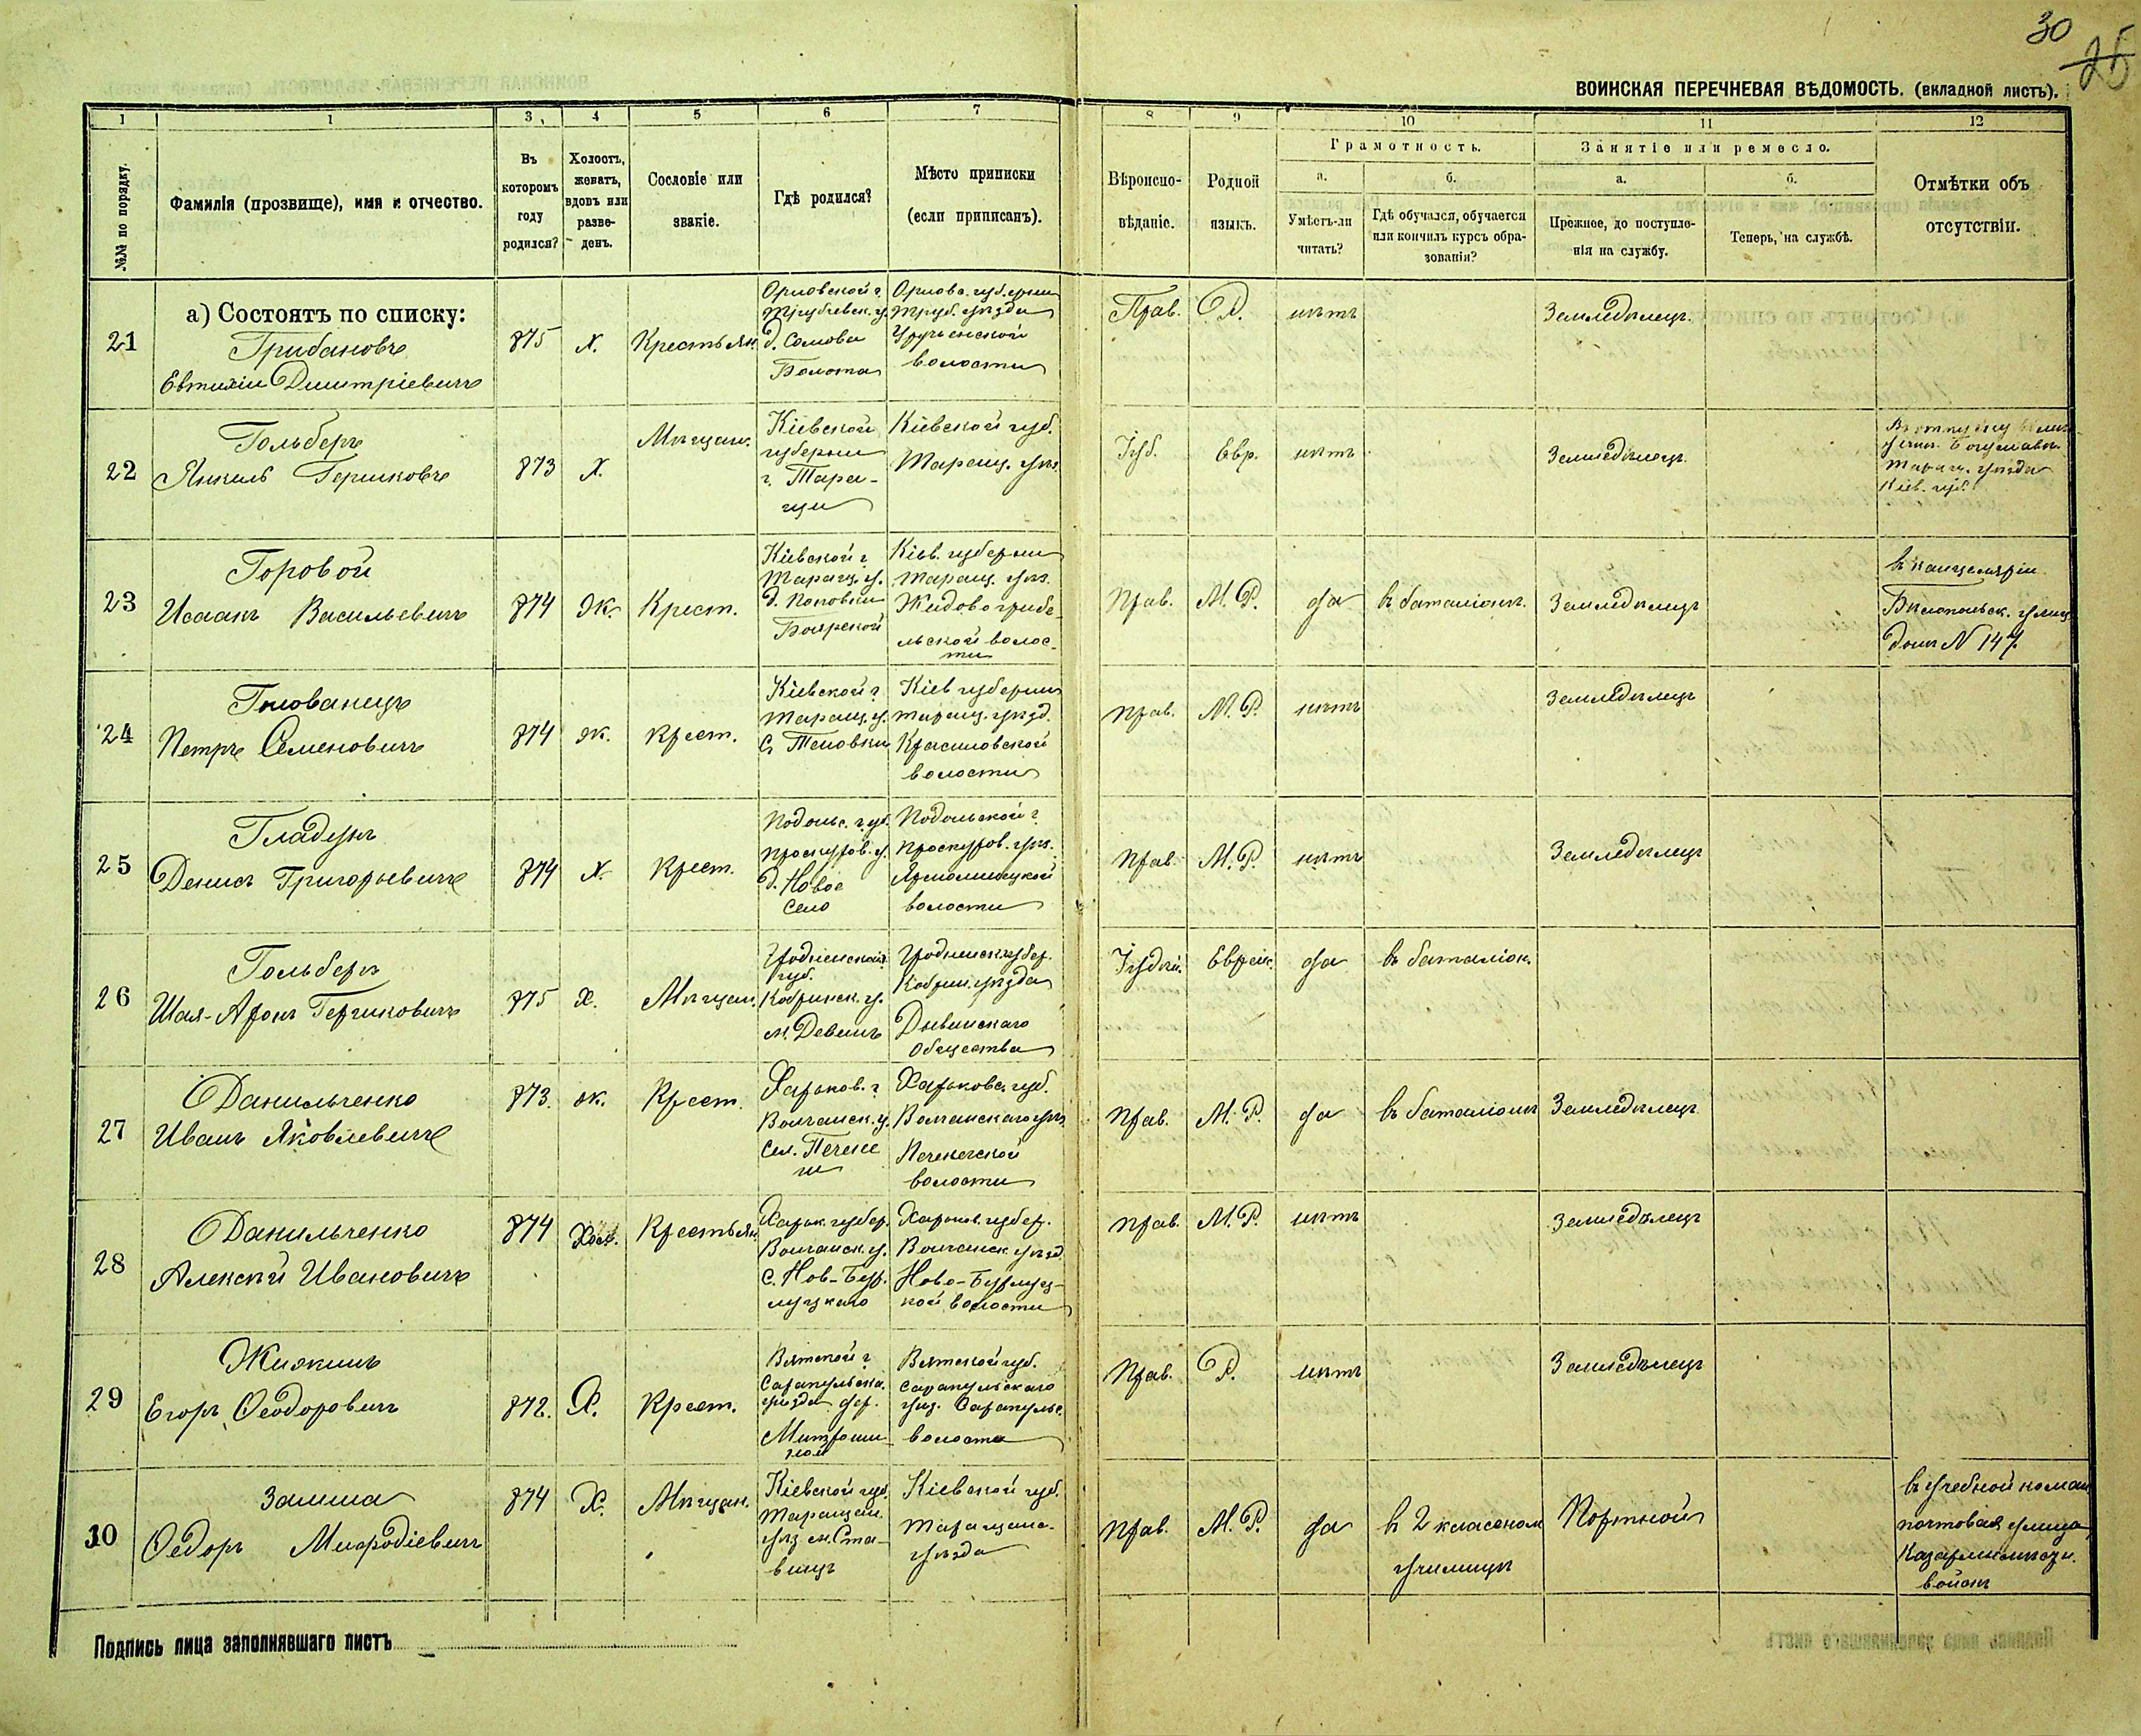 30
25
ВОИНСКАЯ ПЕРЕЧНЕВАЯ ВѢДОМОСТЬ. (вкладной листъ).
1 1 3 4 5 6 7 8 9 10 11 12
№№ по порядку.
Фамилія (прозвище), имя и отчество.
Въ которомъ году родился?
Холостъ, женатъ, вдовъ или разве-денъ.
Сословіе или званіе.
Гдѣ родился?
Мѣсто приписки (если приписанъ).
Вѣроиспо-вѣданіе.
Родной языкъ.
Грамотность.
а. Умѣетъ-ли читать?
б. Гдѣ обучался, обучается или кончилъ курсъ обра-зованія?
Занятіе или ремесло.
а. Прежнее, до поступле-нія на службу.
б. Теперь, на службѣ.
Отмѣтки объ отсутствіи.
а) Состоятъ по списку:
21
Грибановъ
Евтихій Дмитріевичъ
875
х.
Крестьян.
Орловской г.
Трубчевск. у.
д. Сомова
Болота
Орловс. губерніи
Труб. уѣзда
волости
Прав.
Р.
нѣтъ
Земледѣлецъ.
22
Гольберъ
Янкель Гершковъ
873
х.
Мѣщан.
Кіевской
губерніи
г. Тара-
щи
Кіевской губ.
Таращ. уѣз.
Іуд.
Евр.
нѣтъ
Земледѣлецъ.
Таращ. уѣзда
Кіев. губ.
23
Горовой
Исаакъ Васильевичъ
874
ж.
Крест.
Кіевской г.
Таращ. у.
д. Поповки
Боярской
Кіев. губерніи
Таращ. уѣз.
Жидовогребе-
льской волос-
ти
Прав.
М. Р.
да
въ баталіонѣ.
Земледѣлецъ
въ канцеляріи
Бѣлопольск. улиц.
домъ N 147.
24
Петръ Семеновичъ
874
ж.
Крест.
Кіевской г.
Таращ. у.
Кіев губерніи
таращ. уѣзд.
волости
прав.
М. Р.
нѣтъ
Земледѣлецъ
25
Гладунъ
Денисъ Григорьевичъ
874
х.
Крест.
Подольс. губ.
Проскуров. у.
д. Новое
Село
Подольской г.
Проскуров. уѣз.
Ярмолинецкой
волости
прав.
М. Р.
нѣтъ
Земледѣлецъ
26
Гольберъ
Шая-Аронъ Гершковичъ
875
х.
Мѣщан.
Гродненской
губ.
Кобринск. у.
м. Девинъ
Гродненск губер.
Кобрин. уѣзда
Дывинскаго
Общества
Іудей.
Еврейс.
да
въ баталіон.
27
Данильченко
Иванъ Яковлевичъ
873.
ж.
Крест.
Харьков. г.
Волчанск. у.
Сел. Печене
ги
Харьковс. губ.
Волчанскаго уѣз.
Печенегской
волости
прав.
М. Р.
да
въ баталіонѣ
Земледѣлецъ
28
Данильченко
Алексѣй Ивановичъ
874
Хол.
Крестьян.
Харьк. губер.
Волчанск. у.
с. Нов-Бур-
луцкаго
Харьков. губер.
Волчанск. уѣзд.
Ново-Бурлуц-
кой волости
прав.
М. Р.
нѣтъ
Земледѣлецъ
29
Егоръ Ѳеодоровичъ
872.
Х.
Крест.
Вятской г.
Сарапульска.
уѣзда дер.
Вятской губ.
Сарапульскаго
уѣз. Сарапульс.
волости
прав.
Р.
нѣтъ
Земледѣлецъ
30
Замша
Ѳедоръ Меѳодіевичъ
874
Х.
Мѣщан.
Кіевской губ.
Таращан.
уѣз м. Ста-
вищъ
Кіевской губ.
Таращанс.
уѣзда
прав.
М. Р.
да
въ 2 классном
училищѣ
Портной
въ учебной коман.
почтовая улица
Подпись лица заполнявшаго листъ